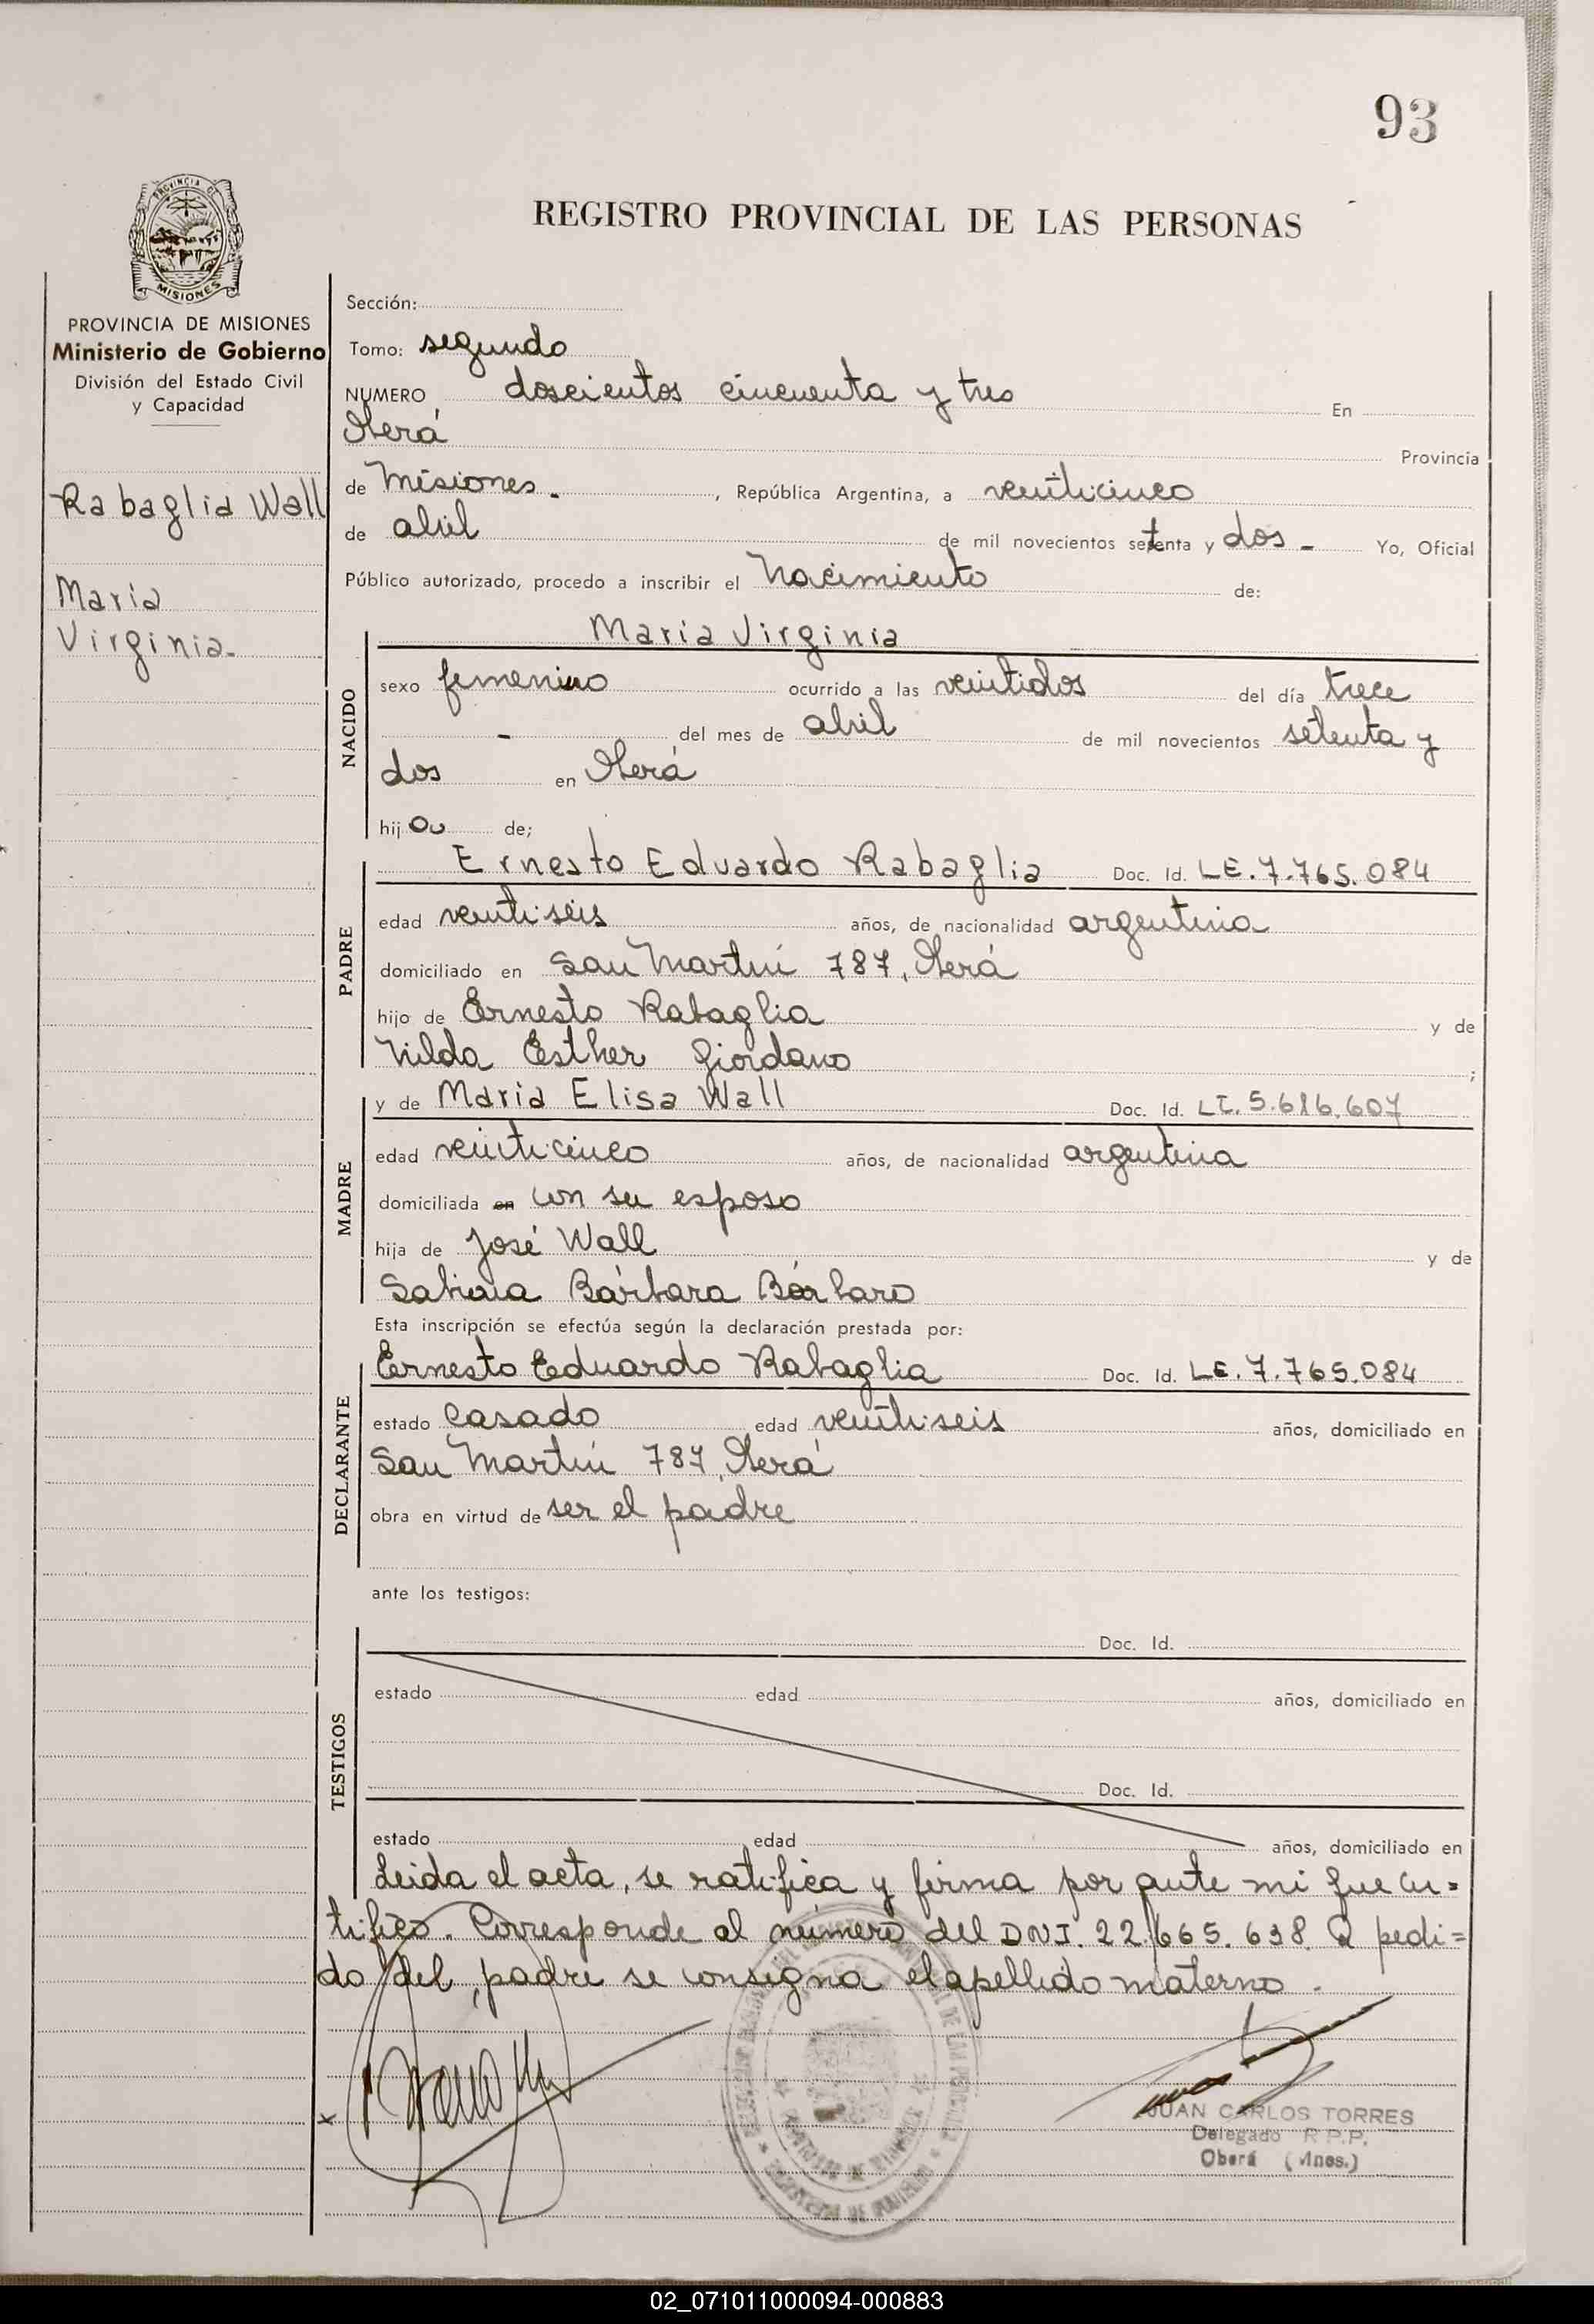 93
PROVINCIA DE
MISIONES
REGISTRO PROVINCIAL DE LAS PERSONAS
PROVINCIA DE MISIONES
Ministerio de Gobierno
División del Estado Civil
y Capacidad
Rabaglia Wall
María
Virginia.
Sección:
Tomo: segundo
NUMERO doscientos cincuenta y tres En
Oberá Provincia
de Misiones. , República Argentina, a veinticinco
de abril de mil novecientos setenta y dos - Yo, Oficial
Público autorizado, procedo a inscribir el Nacimiento de:
NACIDO
María Virginia
sexo femenino ocurrido a las veintidos del día trece
- del mes de abril de mil novecientos setenta y
dos en Oberá
hija de;
PADRE
Ernesto Eduardo Rabaglia Doc. Id. LE. 7.765.084
edad veintiseis años, de nacionalidad argentina
domiciliado en San Martín 787, Oberá
hijo de Ernesto Rabaglia y de
Nilda Esther Giordano ;
MADRE
y de María Elisa Wall Doc. Id. LC. 5.686.607
edad veinticinco años, de nacionalidad argentina
domiciliada en con su esposo
hija de José Wall y de
Sabina Bárbara Bárbaro
Esta inscripción se efectúa según la declaración prestada por:
DECLARANTE
Ernesto Eduardo Rabaglia Doc. Id. LE. 7.765.084
estado casado edad veintiseis años, domiciliado en
San Martín 787, Oberá
obra en virtud de ser el padre
ante los testigos:
TESTIGOS
Doc. Id.
estado edad años, domiciliado en
Doc. Id.
estado edad años, domiciliado en
Leida el acta, se ratifica y firma por ante mi que cer=
tifico. Corresponde al número del DNI. 22.665.638. A pedi=
do del padre se consigna el apellido materno.
JUAN CARLOS TORRES
Delegado R.P.P.
Oberá (Mnes.)
02_071011000094-000883